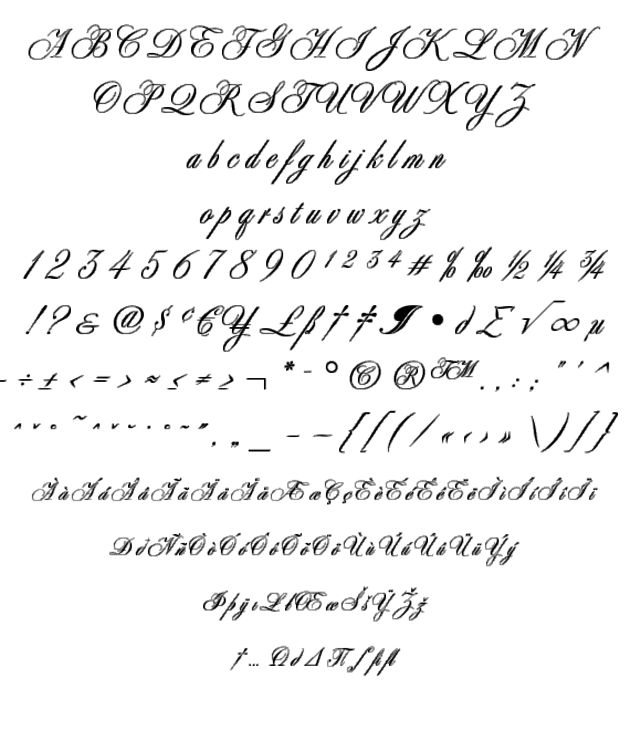 A B C D E F G H I J K L M N
O P Q R S T U V W X Y Z
a b c d e f g h i j k l m n
o p q r s t u v w x y z
1 2 3 4 5 6 7 8 9 0 ¹ ² ³ ⁴ # % ‰ ½ ¼ ¾
! ? & @ $ ¢ € ¥ £ ß † ‡ ¶ • ∂ Σ √ ∞ µ
- ÷ ± < = > ≈ ≤ ≠ ≥ ¬ * - ° © ® ™ . , : ; " ' ^
ˆ ˇ ° ~ ˆ ˇ ˘ · ° ~ ˝ . „ _ – — { [ ( / « ‹ › » \ ) ] }
À à Á á Â â Ã ã Ä ä Å å Æ æ Ç ç È è É é Ê ê Ë ë Ì ì Í í Î î Ï ï
Ð ð Ñ ñ Ò ò Ó ó Ô ô Õ õ Ö ö Ù ù Ú ú Û û Ü ü Ý ý
Þ þ ÿ ı Ł ł Œ œ Š š Ÿ Ž ž
† … Ω ∂ Δ Π ∫ fi fl